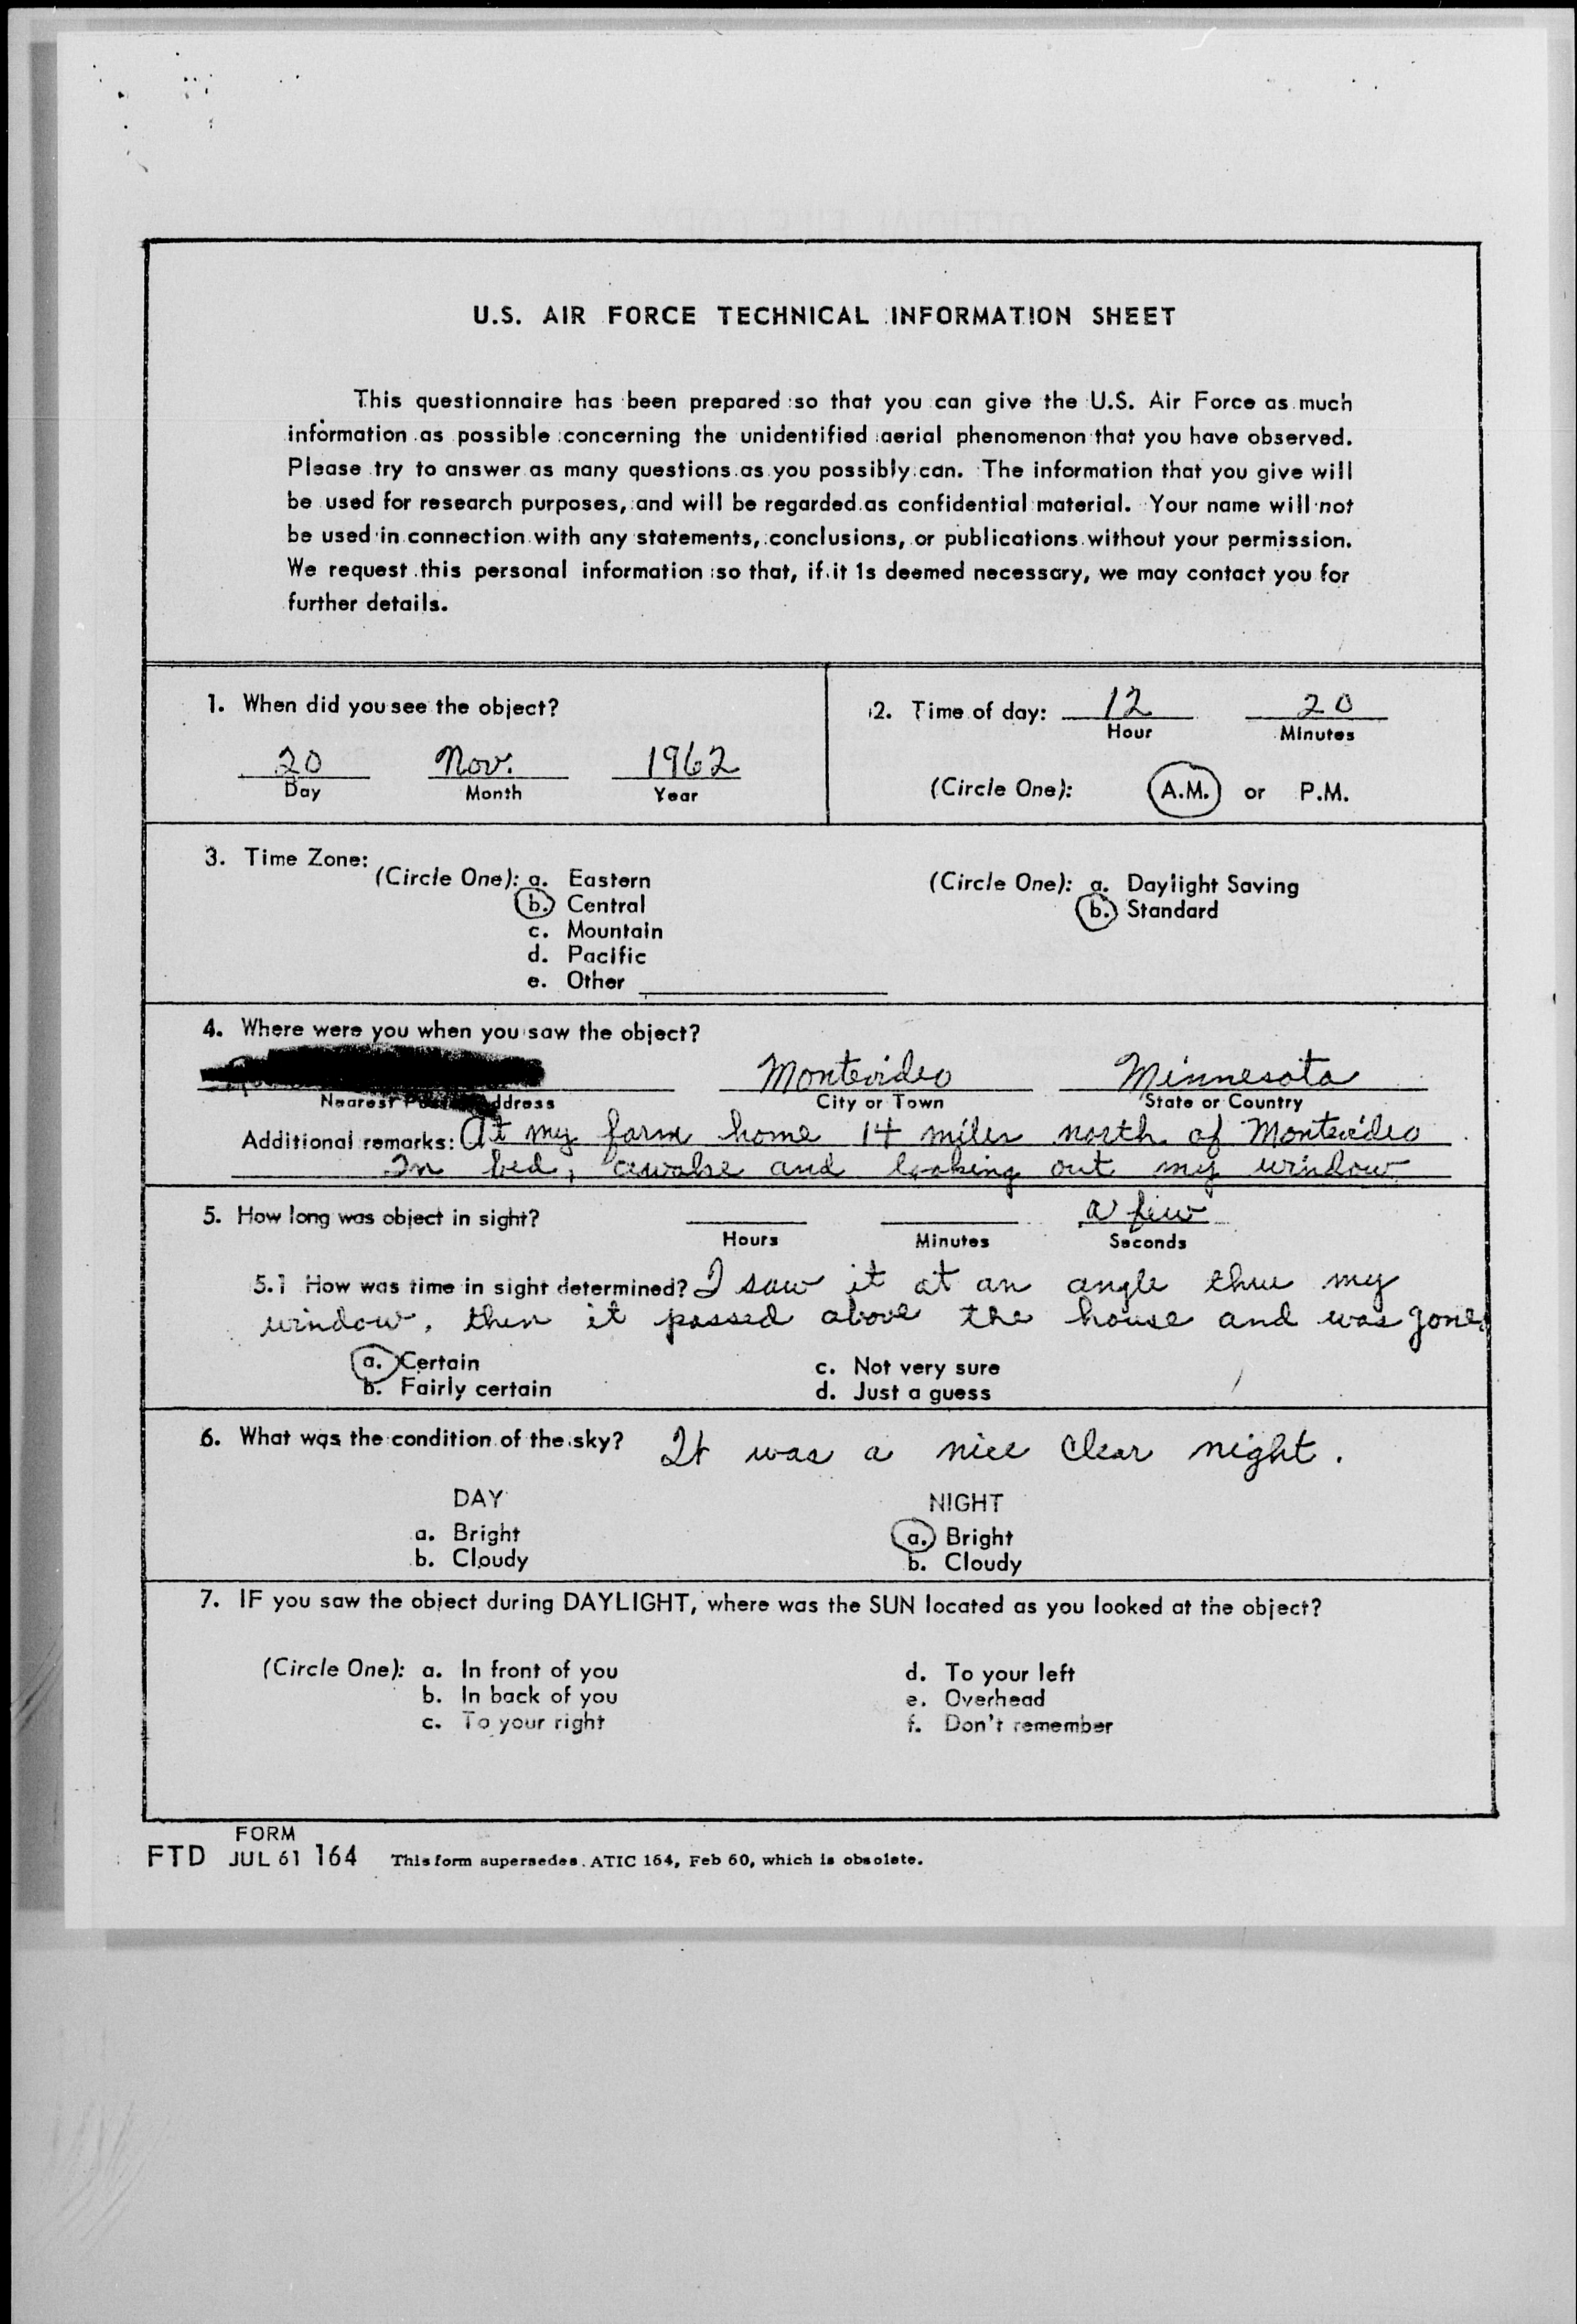 U.S. AIR FORCE TECHNICAL INFORMATION SHEET
This questionnaire has been prepared so that you can give the U.S. Air Force as much
information as possible concerning the unidentified aerial phenomenon that you have observed.
Please try to answer as many questions as you possibly can. The information that you give will
be used for research purposes, and will be regarded as confidential material. Your name will not
be used in connection with any statements, conclusions, or publications without your permission.
We request this personal information so that, if it is deemed necessary, we may contact you for
further details.
1. When did you see the object?
20 Nov. 1962
Day Month Year
2. Time of day: 12 20
Hour Minutes
(Circle One): A.M. or P.M.
3. Time Zone:
(Circle One): a. Eastern
b. Central
c. Mountain
d. Pacific
e. Other
(Circle One): a. Daylight Saving
b. Standard
4. Where were you when you saw the object?
Montevideo Minnesota
Nearest Address City or Town State or Country
Additional remarks: At my farm home 14 miles north of Montevideo
In bed, awake and looking out my window
5. How long was object in sight? a few
Hours Minutes Seconds
5.1 How was time in sight determined? I saw it at an angle thru my
window, then it passed above the house and was gone.
a. Certain
b. Fairly certain
c. Not very sure
d. Just a guess
6. What was the condition of the sky? It was a nice clear night.
DAY
a. Bright
b. Cloudy
NIGHT
a. Bright
b. Cloudy
7. IF you saw the object during DAYLIGHT, where was the SUN located as you looked at the object?
(Circle One): a. In front of you
b. In back of you
c. To your right
d. To your left
e. Overhead
f. Don't remember
FORM
FTD JUL 61 164 This form supersedes ATIC 164, Feb 60, which is obsolete.